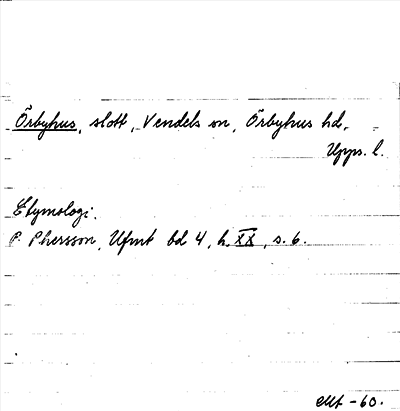 Örbyhus, slott, Vendels sn, Örbyhus hd,
Upps. l.
Etymologi.
P. Phersson, Ufmt bd 4, h. XX, s. 6.
EMt -60.